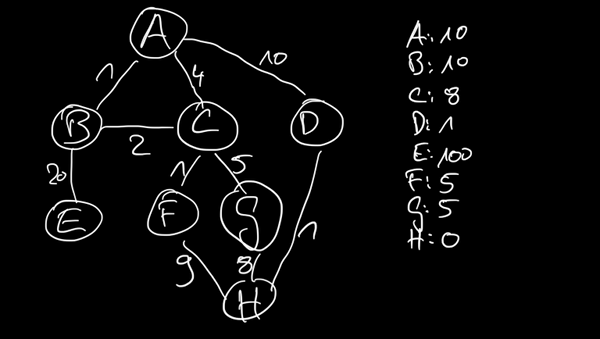 A
1
4
10
B
2
C
D
20
1
5
E
F
G
9
8
1
H
A: 10
B: 10
C: 8
D: 1
E: 100
F: 5
G: 5
H: 0